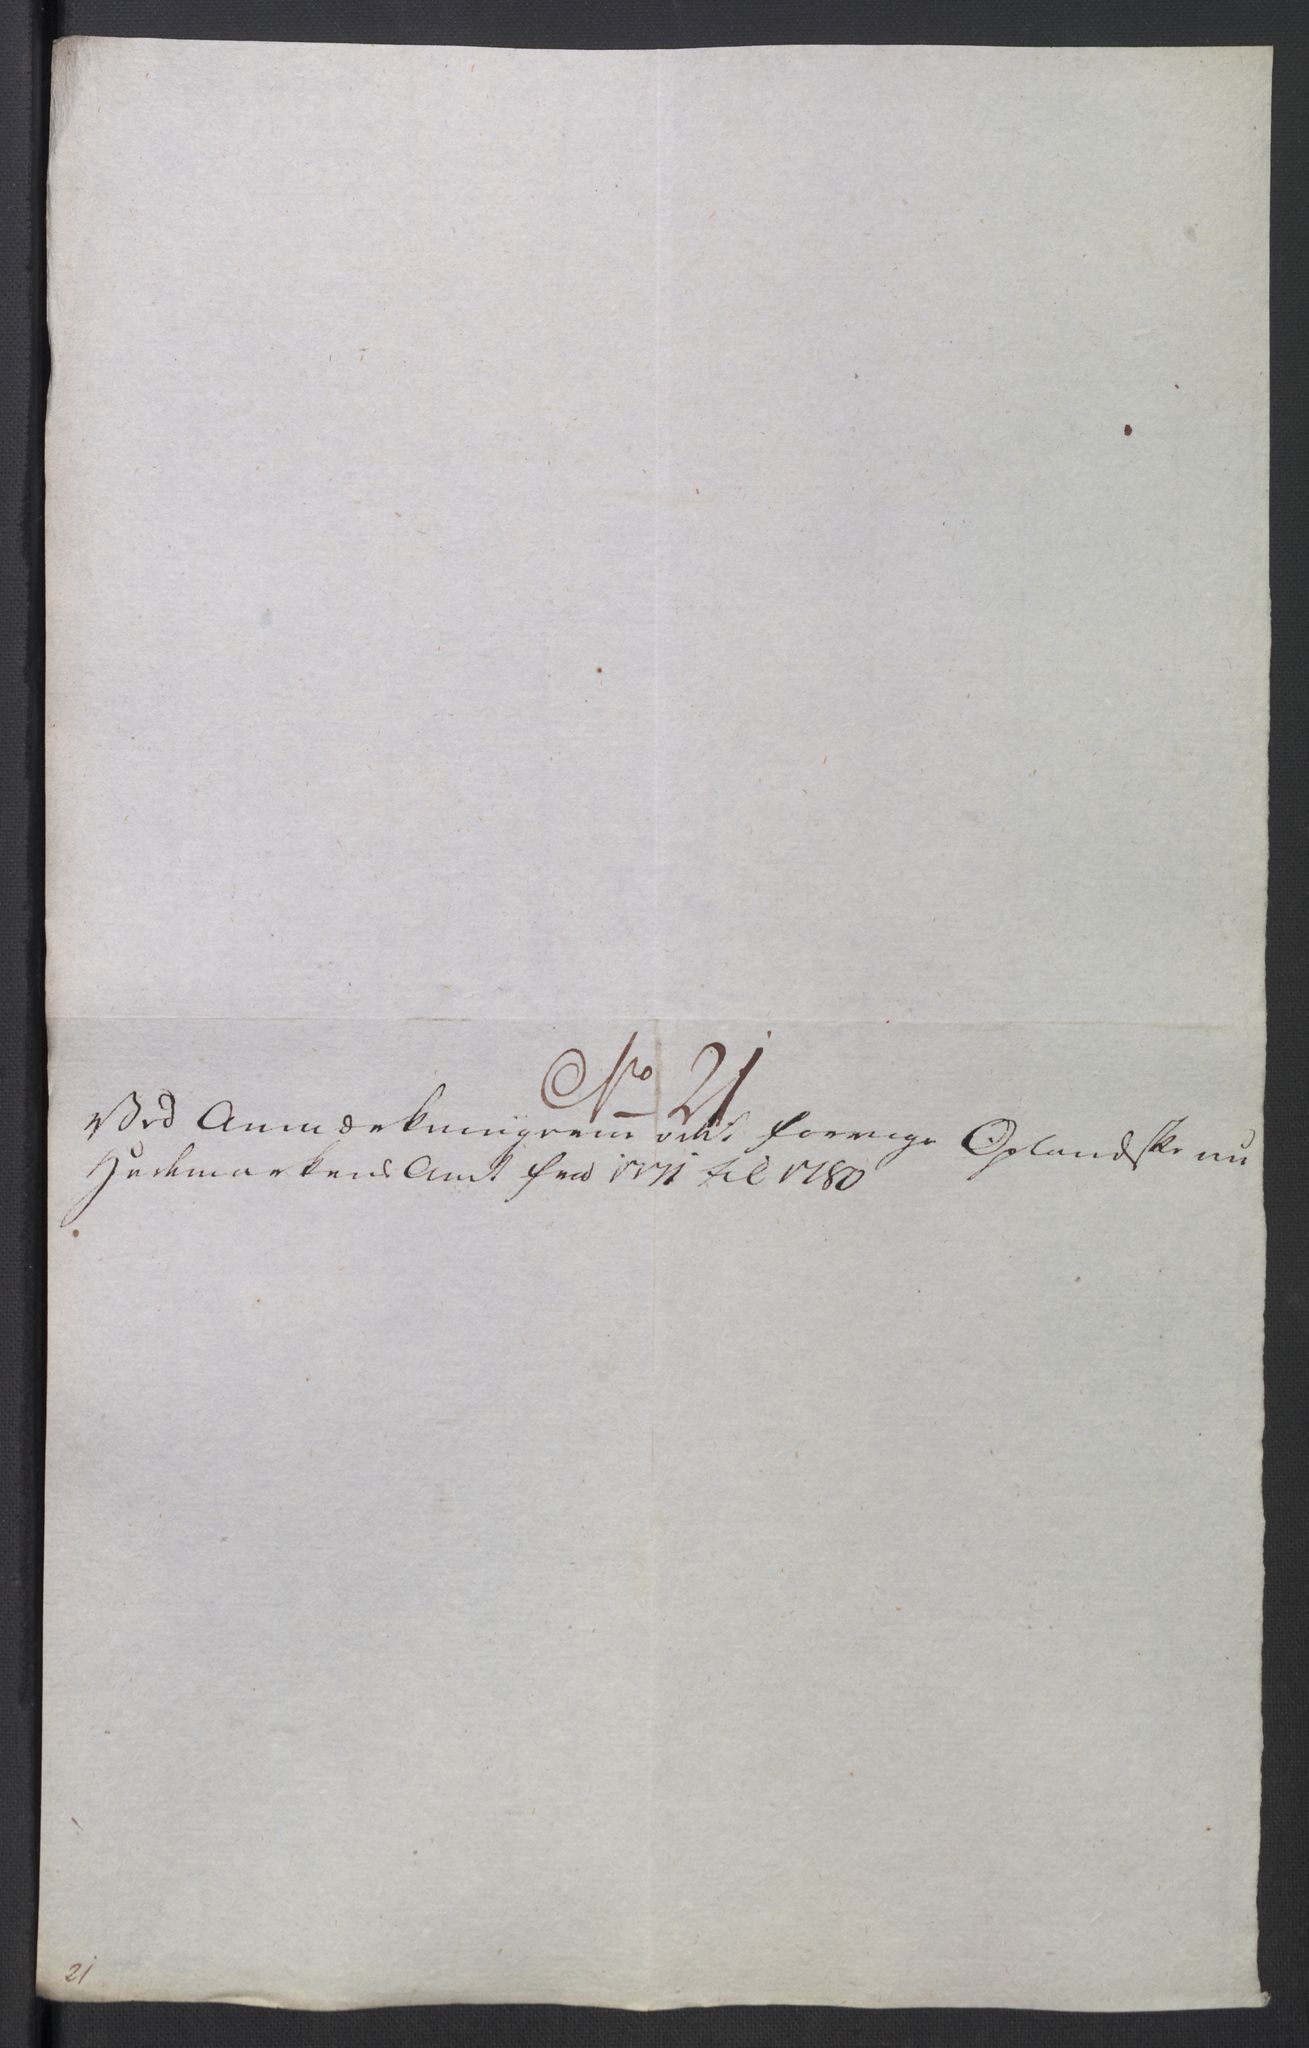 No 21
Ved Anmærkningerne vedk: forrige Oplandske nu
Hedemarkens Amt fra 1771 til 1780
21